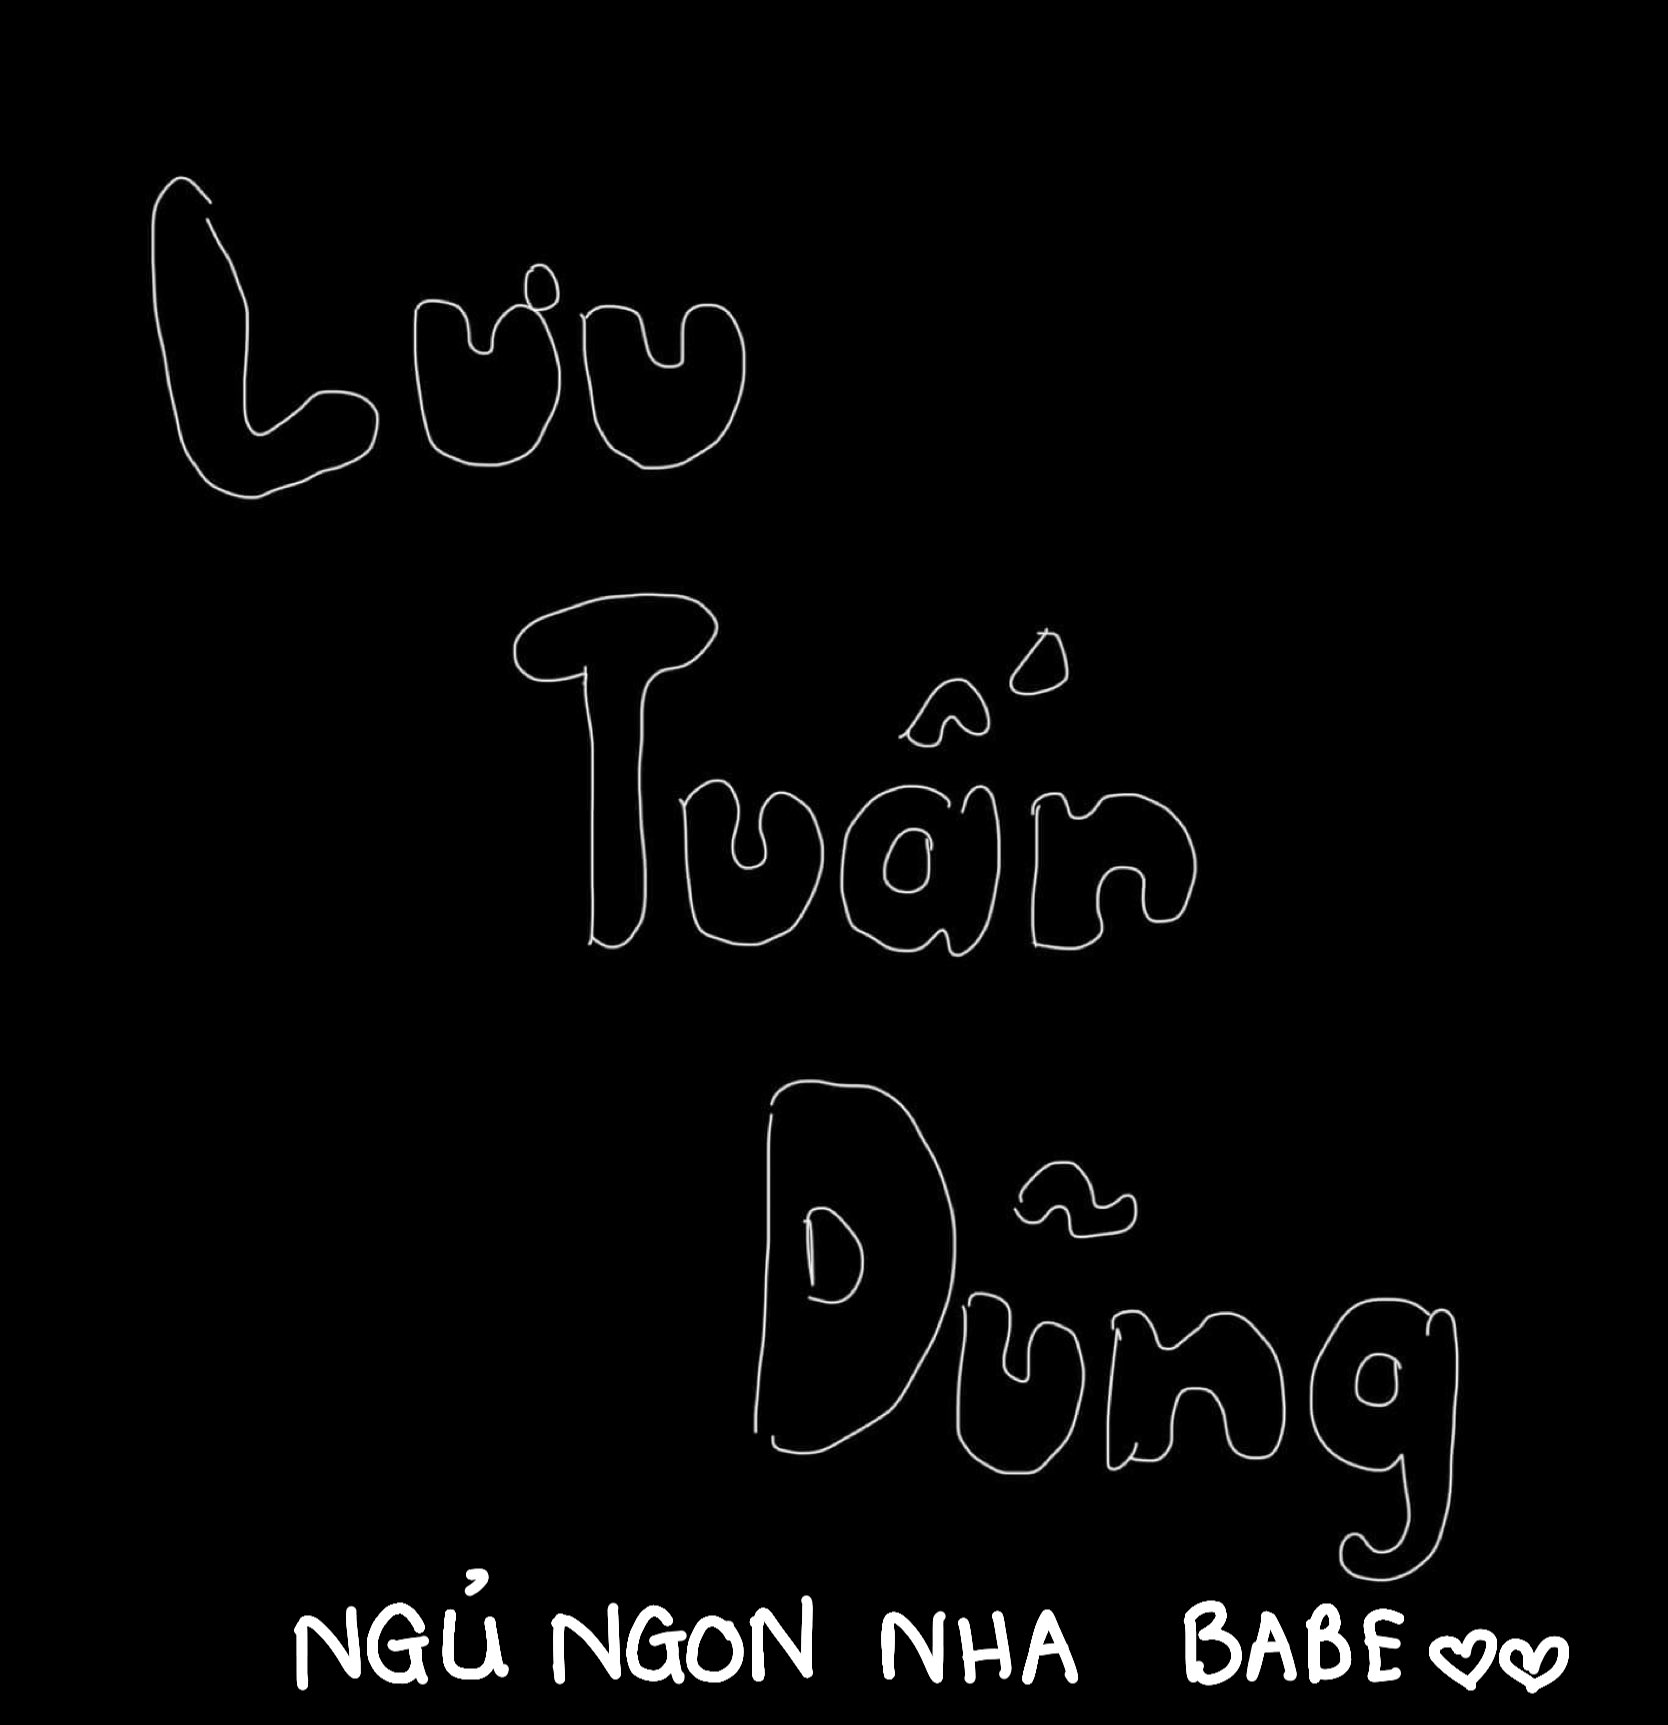 Lưu
Tuấn
Dũng
NGỦ NGON NHA BABE♡♡